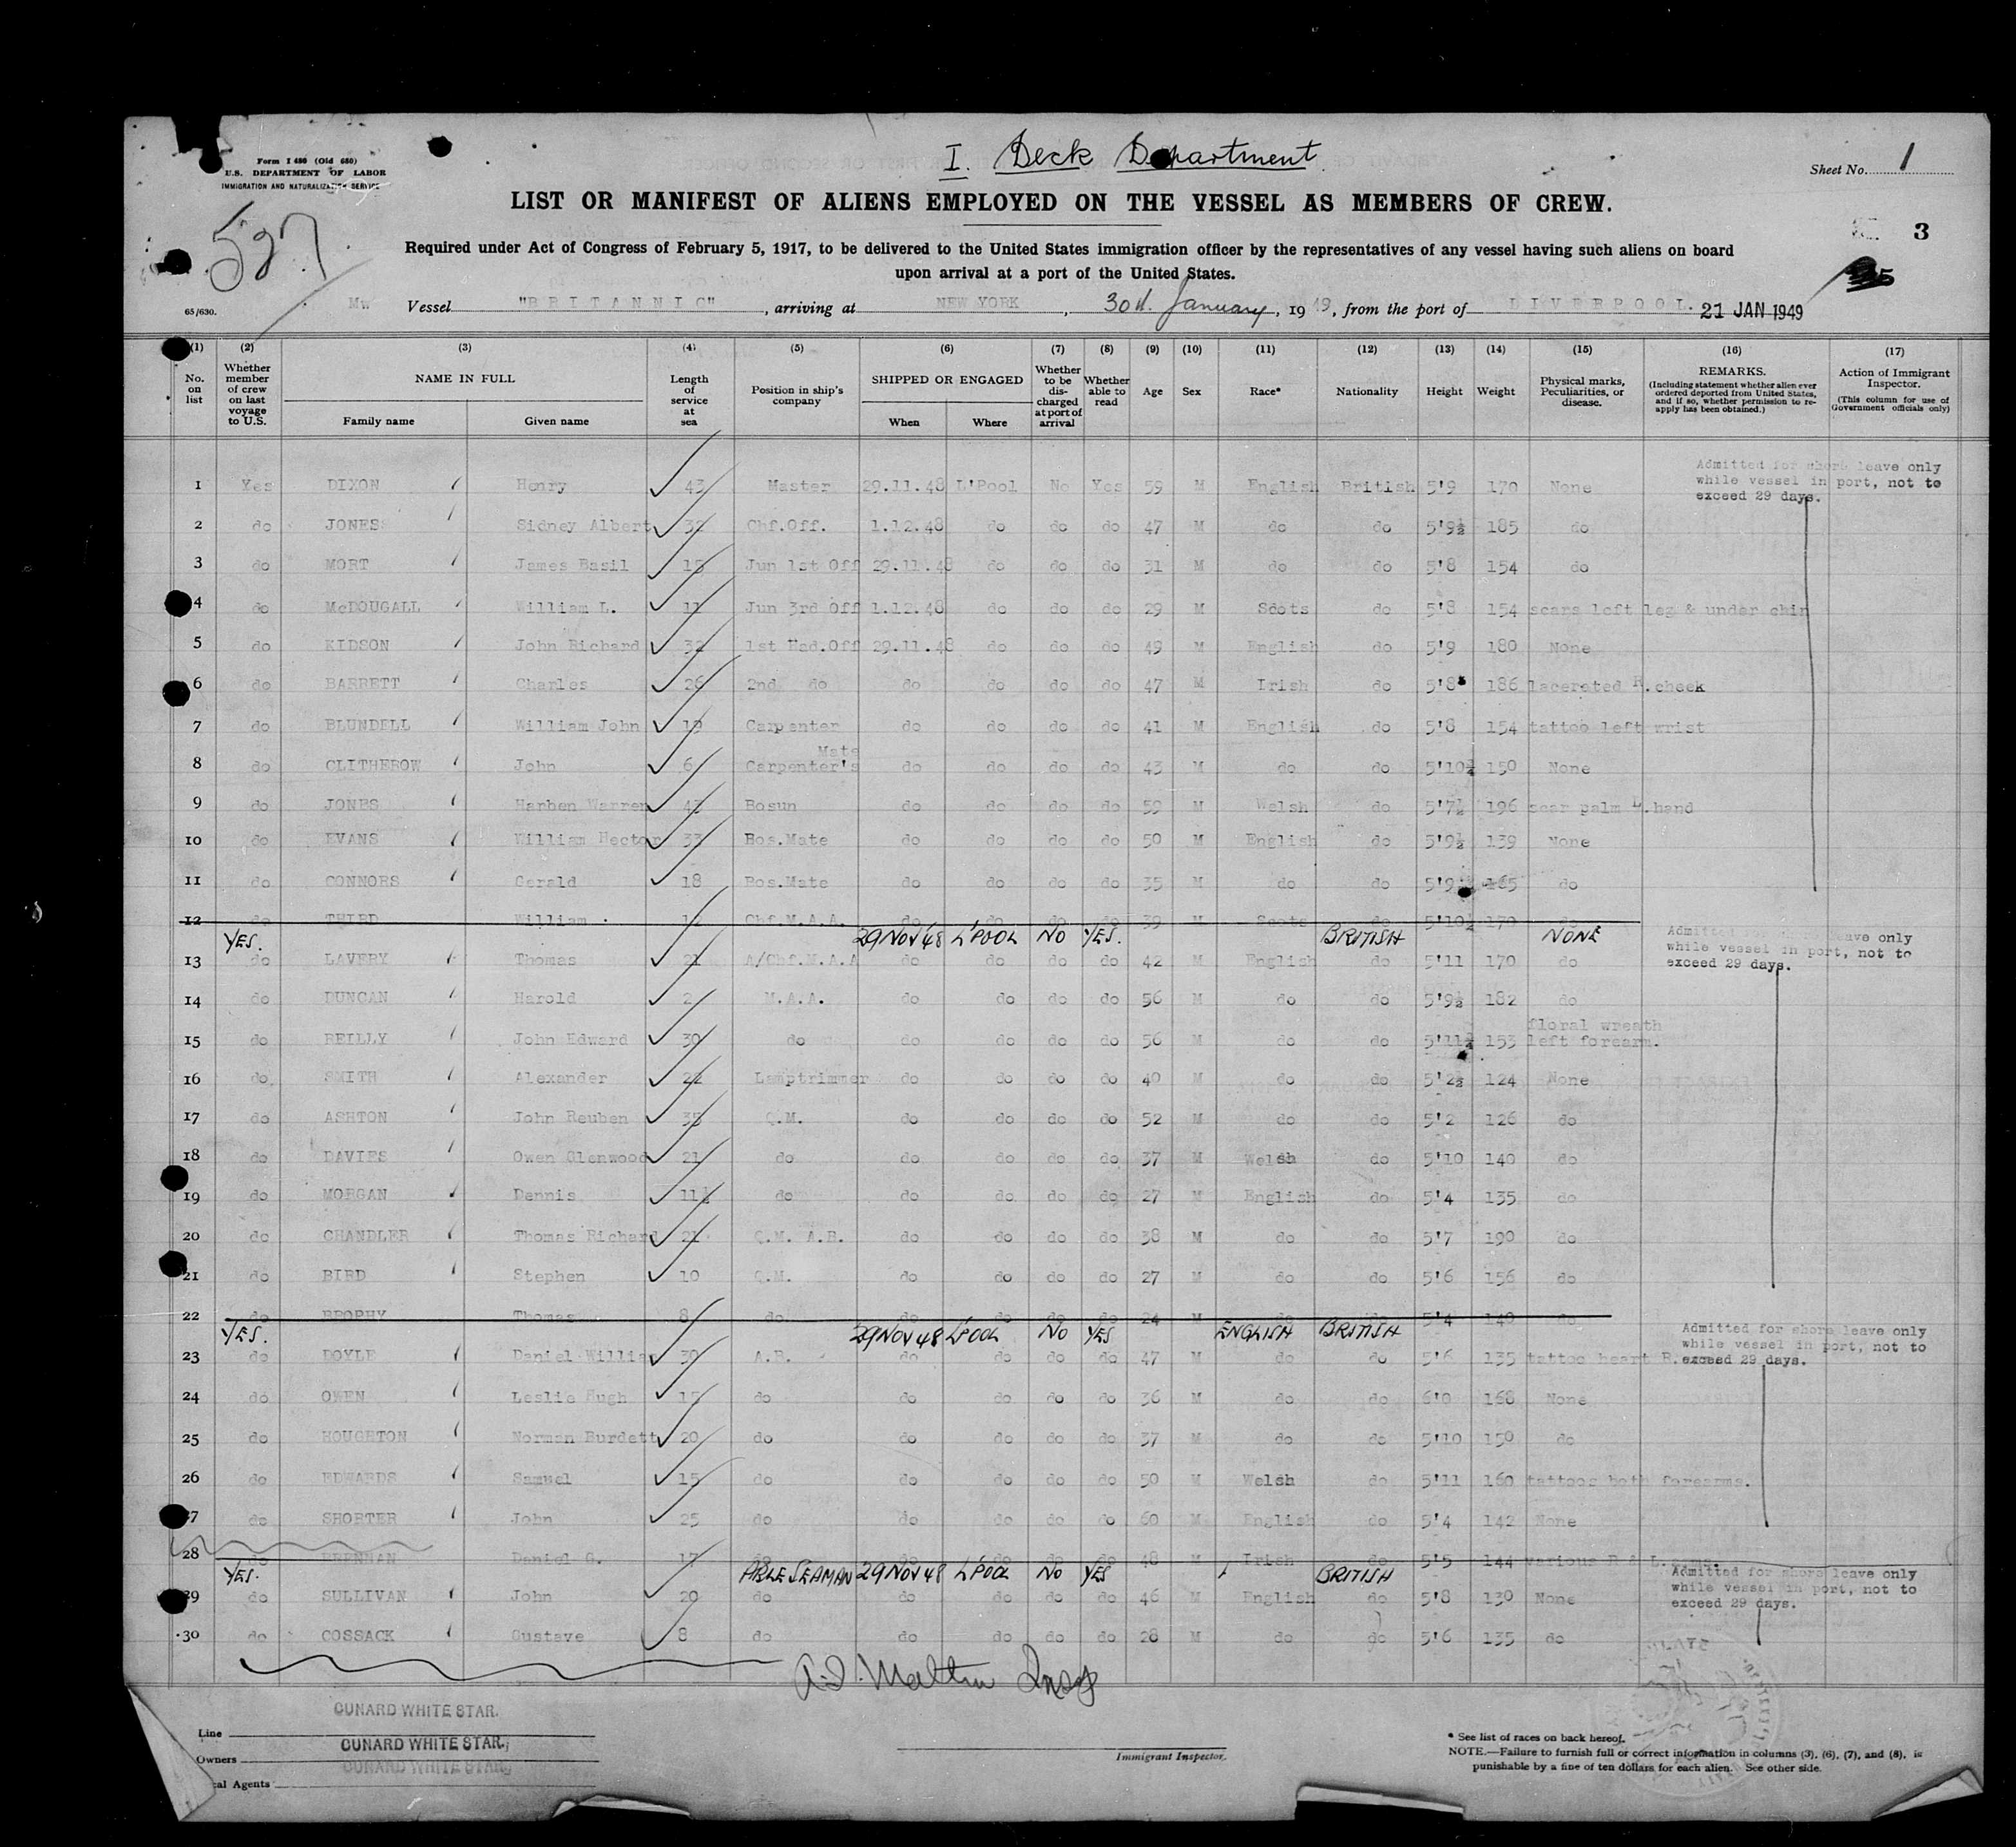 I. Deck Department
Form I 480 (Old 680)
U.S. DEPARTMENT OF LABOR
IMMIGRATION AND NATURALIZATION SERVICE
Sheet No. 1
LIST OR MANIFEST OF ALIENS EMPLOYED ON THE VESSEL AS MEMBERS OF CREW.
527
3
Required under Act of Congress of February 5, 1917, to be delivered to the United States immigration officer by the representatives of any vessel having such aliens on board
upon arrival at a port of the United States.
65/630. Mw Vessel "BRITANNIC", arriving at NEW YORK, 30th January, 1949, from the port of LIVERPOOL. 21 JAN 1949
(1) (2) (3) (4) (5) (6) (7) (8) (9) (10) (11) (12) (13) (14) (15) (16) (17)
No. on list Whether member of crew on last voyage to U.S. NAME IN FULL Family name Given name Length of service at sea Position in ship's company SHIPPED OR ENGAGED When Where Whether to be discharged at port of arrival Whether able to read Age Sex Race* Nationality Height Weight Physical marks, Peculiarities, or disease. REMARKS. (Including statement whether alien ever ordered deported from United States, and if so, whether permission to re-apply has been obtained.) Action of Immigrant Inspector. (This column for use of Government officials only)
Admitted for short leave only
while vessel in port, not to
exceed 29 days.
1 Yes DIXON Henry 43 Master 29.11.48 L'Pool No Yes 59 M English British 5'9 170 None
2 do JONES Sidney Albert 32 Chf.Off. 1.12.48 do do do 47 M do do 5'9½ 185 do
3 do MORT James Basil 15 Jun 1st Off 29.11.48 do do do 31 M do do 5'8 154 do
4 do McDOUGALL William L. 11 Jun 3rd Off 1.12.48 do do do 29 M Scots do 5'8 154 scars left leg & under chin
5 do KIDSON John Richard 32 1st Rad.Off 29.11.48 do do do 49 M English do 5'9 180 None
6 do BARRETT Charles 26 2nd do do do do do 47 M Irish do 5'8 186 lacerated R.cheek
7 do BLUNDELL William John 19 Carpenter do do do do 41 M English do 5'8 154 tattoo left wrist
8 do CLITHEROW John 6 Carpenter's Mate do do do do 43 M do do 5'10½ 150 None
9 do JONES Harben Warren 43 Bosun do do do do 59 M Welsh do 5'7½ 196 scar palm L.hand
10 do EVANS William Hector 33 Bos.Mate do do do do 50 M English do 5'9½ 139 None
11 do CONNORS Gerald 18 Bos.Mate do do do do 35 M do do 5'9 165 do
12 do THIRD William Chf.M.A.A. do do do do 39 M Scots do 5'10½ 170 do
YES. 29 NOV 48 L'POOL NO YES. BRITISH NONE
Admitted for short leave only
while vessel in port, not to
exceed 29 days.
13 do LAVERY Thomas 21 A/Chf.M.A.A do do do do 42 M English do 5'11 170 do
14 do DUNCAN Harold 2 M.A.A. do do do do 56 M do do 5'9½ 182 do
15 do REILLY John Edward 30 do do do do do 56 M do do 5'11½ 153 floral wreath left forearm.
16 do SMITH Alexander 22 Lamptrimmer do do do do 40 M do do 5'2½ 124 None
17 do ASHTON John Reuben 35 Q.M. do do do do 52 M do do 5'2 126 do
18 do DAVIES Owen Glenwood 21 do do do do do 37 M Welsh do 5'10 140 do
19 do MORGAN Dennis 11½ do do do do do 27 M English do 5'4 135 do
20 do CHANDLER Thomas Richard 21 Q.M. A.B. do do do do 38 M do do 5'7 190 do
21 do BIRD Stephen 10 Q.M. do do do do 27 M do do 5'6 156 do
22 do BROPHY Thomas 8 do do do do do 24 M do do 5'4 140 do
YES. 29 NOV 48 L'POOL NO YES ENGLISH BRITISH
Admitted for short leave only
while vessel in port, not to
exceed 29 days.
23 do DOYLE Daniel William 30 A.B. do do do do 47 M do do 5'6 135 tattoo heart R.
24 do OWEN Leslie Hugh 15 do do do do do 36 M do do 6'0 168 None
25 do HOUGHTON Norman Burdett 20 do do do do do 37 M do do 5'10 150 do
26 do EDWARDS Samuel 15 do do do do do 50 M Welsh do 5'11 160 tattoos both forearms.
27 do SHORTER John 25 do do do do do 60 M English do 5'4 142 None
28 do BRENNAN Daniel G. 17 do do do do do 48 M Irish do 5'5 144 various R & L. arms.
YES. ABLE SEAMAN 29 NOV 48 L'POOL NO YES BRITISH
Admitted for short leave only
while vessel in port, not to
exceed 29 days.
29 do SULLIVAN John 20 do do do do do 46 M English do 5'8 130 None
30 do COSSACK Gustave 8 do do do do do 28 M do do 5'6 135 do
CUNARD WHITE STAR.
Line
CUNARD WHITE STAR.
Owners
CUNARD WHITE STAR.
cal Agents
Immigrant Inspector.
* See list of races on back hereof.
NOTE.—Failure to furnish full or correct information in columns (3), (6), (7), and (8), is
punishable by a fine of ten dollars for each alien. See other side.